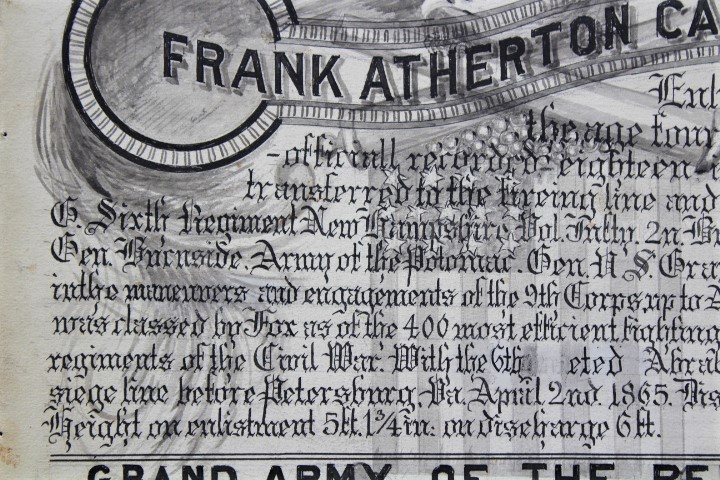 FRANK ATHERTON CA
Enl
the age four
-officiall recorded eighteen-
transferred to the fireing line and
G. Sixth Regiment New Hampshire Vol. Infty. 2n. Br
Gen. Burnside. Army of the Potomac. Gen. U. S. Gra
in the maneuvers and engagements of the 9th Corps up to
was classed by Fox as of the 400 most efficient fighting
regiments of the Civil War. With the 6th eted Abra
siege line before Petersburg. Va. April 2nd. 1865. Dis
Height on enlistment 5ft. 1¾ in: on discharge 6ft.
GRAND ARMY OF THE RE